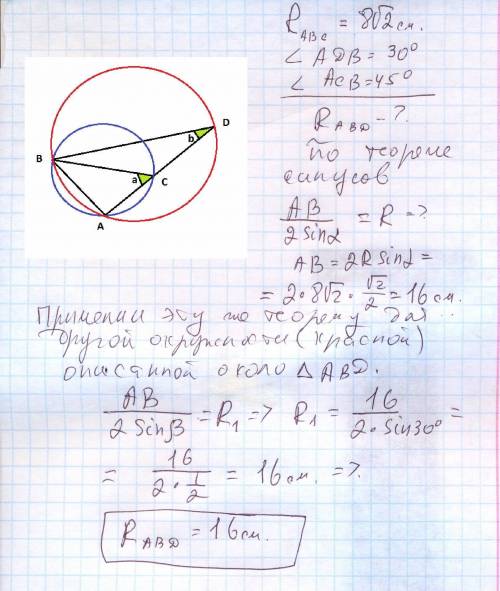 R ABC = 8√2 см.
∠ ADB = 30°
∠ ACB = 45°
R ABD - ?
По теореме
синусов
AB / 2 sin α = R =>
AB = 2R sin α =
= 2 · 8√2 · √2/2 = 16 см.
Применим эту же теорему для
другой окружности (красной)
описанной около △ ABD.
AB / 2 Sin β = R₁ => R₁ = 16 / 2 · Sin 30° =
= 16 / 2 · 1/2 = 16 см. =>
R ABD = 16 см.
D
b
B
a
C
A